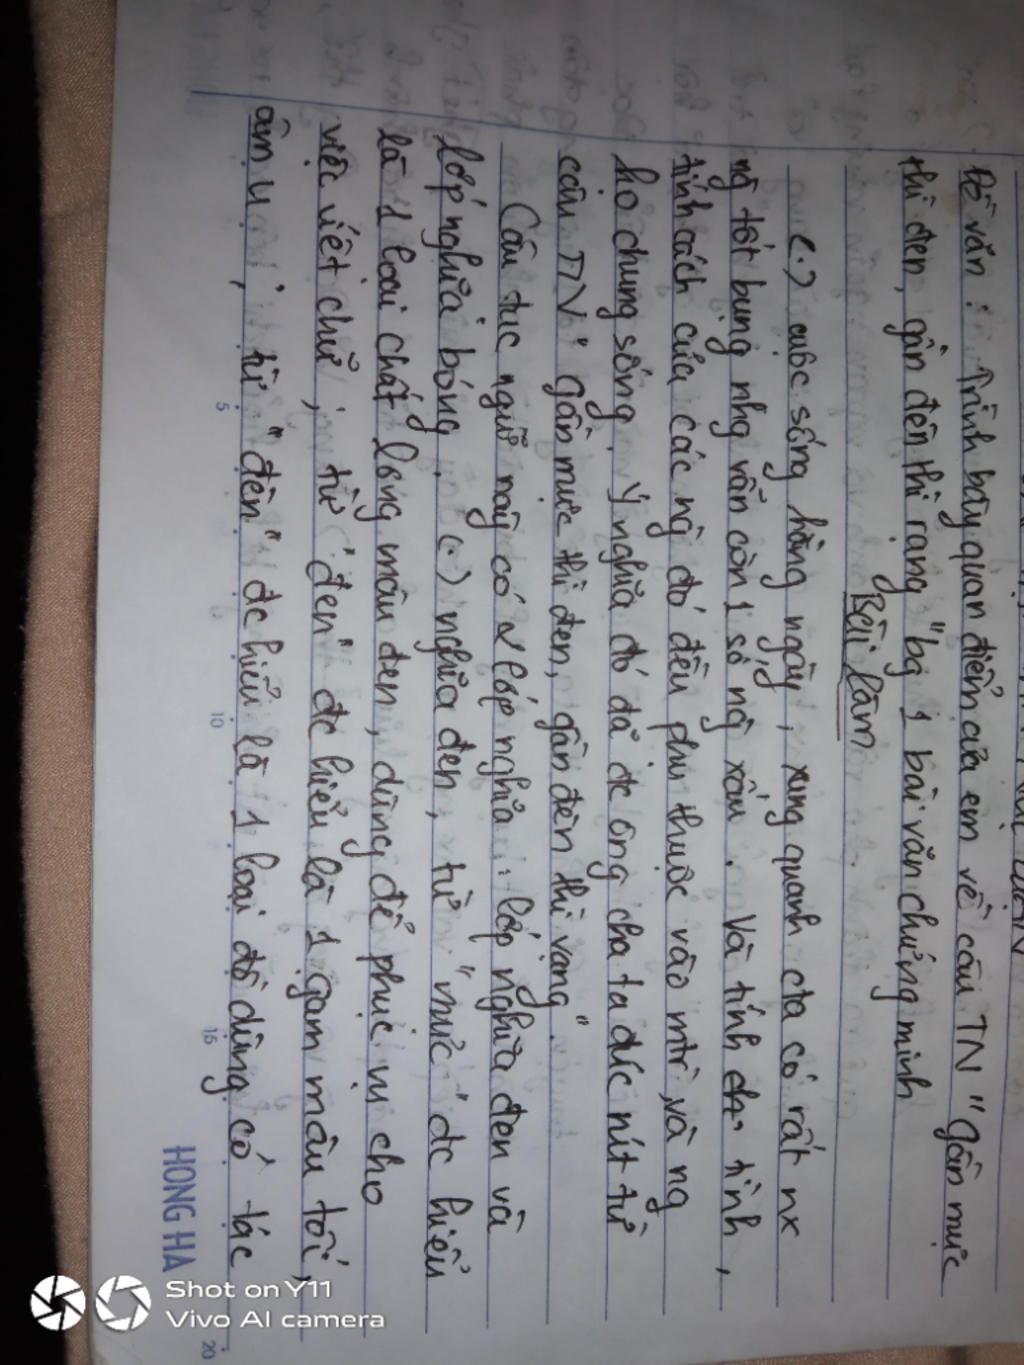 Đề văn : Trình bày quan điểm của em về câu TN " Gần mực
thì đen, gần đèn thì rạng " bg 1 bài văn chứng minh
Bài làm
(.) cuộc sống hằng ngày, xung quanh cta có rất nx
ng tốt bụng nhg vẫn còn 1 số ng xấu. Và tính tình,
tính cách của các ng đó đều phụ thuộc vào mtr và ng
họ chung sống. Ý nghĩa đó đã đc ông cha ta đúc rút từ
câu TN " Gần mực thì đen, gần đèn thì rạng "
Câu tục ngữ này có 2 lớp nghĩa : lớp nghĩa đen và
lớp nghĩa bóng. (.) nghĩa đen, từ " mực " đc hiểu
là 1 loại chất lỏng màu đen, dùng để phục vụ cho
việc viết chữ ; từ " đen " đc hiểu là 1 gam màu tối,
âm u ; từ " đèn " đc hiểu là 1 loại đồ dùng có tác
5
10
15
20
HONG HA
Shot on Y11
Vivo AI camera